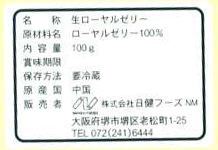 名 称 生ローヤルゼリー
原材料名 ローヤルゼリー100%
内 容 量 100g
賞味期限
保存方法 要冷蔵
原 産 国 中国
販 売 者 株式会社日健フーズNM
大阪府堺市堺区老松町1-25
TEL 072(241)6444